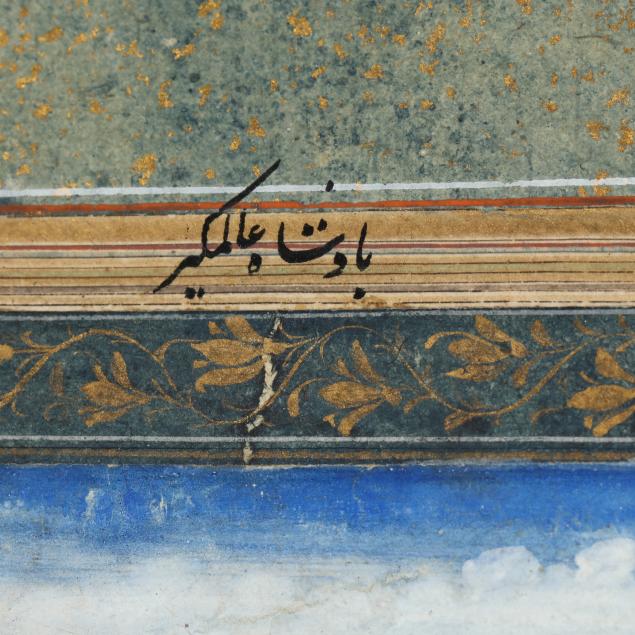 بادشاه عالمگیر